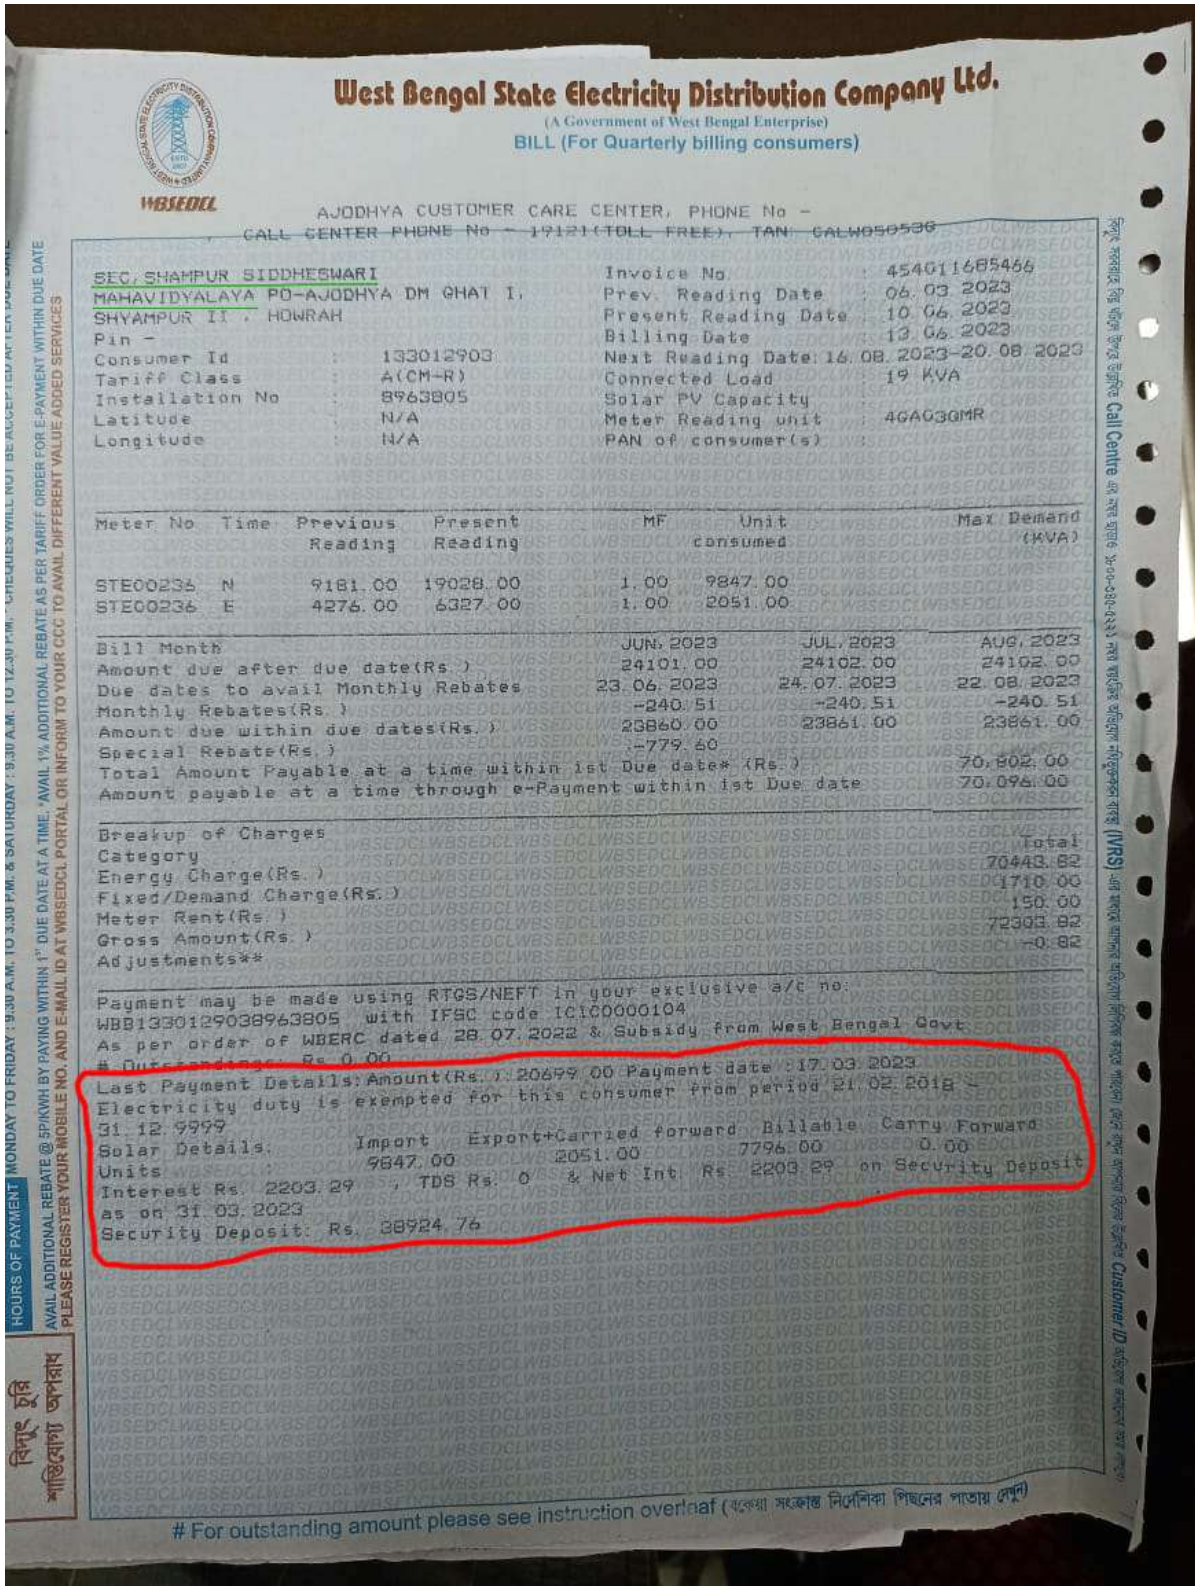 West Bengal State Electricity Distribution Company Ltd.
(A Government of West Bengal Enterprise)
BILL (For Quarterly billing consumers)
WBSEDCL
AJODHYA CUSTOMER CARE CENTER, PHONE No -
, CALL CENTER PHONE No - 19121(TOLL FREE), TAN: CALW05053G
SEC, SHAMPUR SIDDHESWARI
MAHAVIDYALAYA PO-AJODHYA DM GHAT I,
SHYAMPUR II , HOWRAH
Pin -
Consumer Id : 133012903
Tariff Class : A(CM-R)
Installation No : 8963805
Latitude : N/A
Longitude : N/A
Invoice No : 454011685466
Prev. Reading Date : 06.03.2023
Present Reading Date : 10.06.2023
Billing Date : 13.06.2023
Next Reading Date: 16.08.2023-20.08.2023
Connected Load : 19 KVA
Solar PV Capacity :
Meter Reading unit : 4GAG3GMR
PAN of consumer(s) :
Meter No Time Previous Present MF Unit Max Demand
Reading Reading consumed (KVA)
STE00236 N 9181.00 19028.00 1.00 9847.00
STE00236 E 4276.00 6327.00 1.00 2051.00
Bill Month JUN, 2023 JUL, 2023 AUG, 2023
Amount due after due date(Rs.) 24101.00 24102.00 24102.00
Due dates to avail Monthly Rebates 23.06.2023 24.07.2023 22.08.2023
Monthly Rebates(Rs.) -240.51 -240.51 -240.51
Amount due within due dates(Rs.) 23860.00 23861.00 23861.00
Special Rebate(Rs.) :-779.60
Total Amount Payable at a time within 1st Due date* (Rs.) 70,802.00
Amount payable at a time through e-Payment within 1st Due date 70,096.00
Breakup of Charges
Category Total
Energy Charge(Rs.) 70443.82
Fixed/Demand Charge(Rs.) 1710.00
Meter Rent(Rs.) 150.00
Gross Amount(Rs.) 72303.82
Adjustments** -0.82
Payment may be made using RTGS/NEFT in your exclusive a/c no:
WBB1330129038963805 with IFSC code ICIC0000104
As per order of WBERC dated 28.07.2022 & Subsidy from West Bengal Govt
# Outstandings: Rs 0.00
Last Payment Details: Amount(Rs.): 20699.00 Payment date :17.03.2023
Electricity duty is exempted for this consumer from period 21.02.2018 -
31.12.9999
Solar Details: Import Export+Carried forward Billable Carry Forward
Units : 9847.00 2051.00 7796.00 0.00
Interest Rs. 2203.29 , TDS Rs. 0 & Net Int. Rs. 2203.29 on Security Deposit
as on 31.03.2023
Security Deposit: Rs. 38924.76
# For outstanding amount please see instruction overleaf (বকেয়া সংক্রান্ত নির্দেশিকা পিছনের পাতায় দেখুন)
HOURS OF PAYMENT MONDAY TO FRIDAY : 9.30 A.M. TO 3.30 P.M. & SATURDAY : 9.30 A.M. TO 12.30 P.M. CHEQUES WILL NOT BE ACCEPTED AFTER DUE DATE
AVAIL ADDITIONAL REBATE @ 5P/KWH BY PAYING WITHIN 1ST DUE DATE AT A TIME, *AVAIL 1% ADDITIONAL REBATE AS PER TARIFF ORDER FOR E-PAYMENT WITHIN DUE DATE
PLEASE REGISTER YOUR MOBILE NO. AND E-MAIL ID AT WBSEDCL PORTAL OR INFORM TO YOUR CCC TO AVAIL DIFFERENT VALUE ADDED SERVICES
বিদ্যুৎ চুরি
শাস্তিযোগ্য অপরাধ